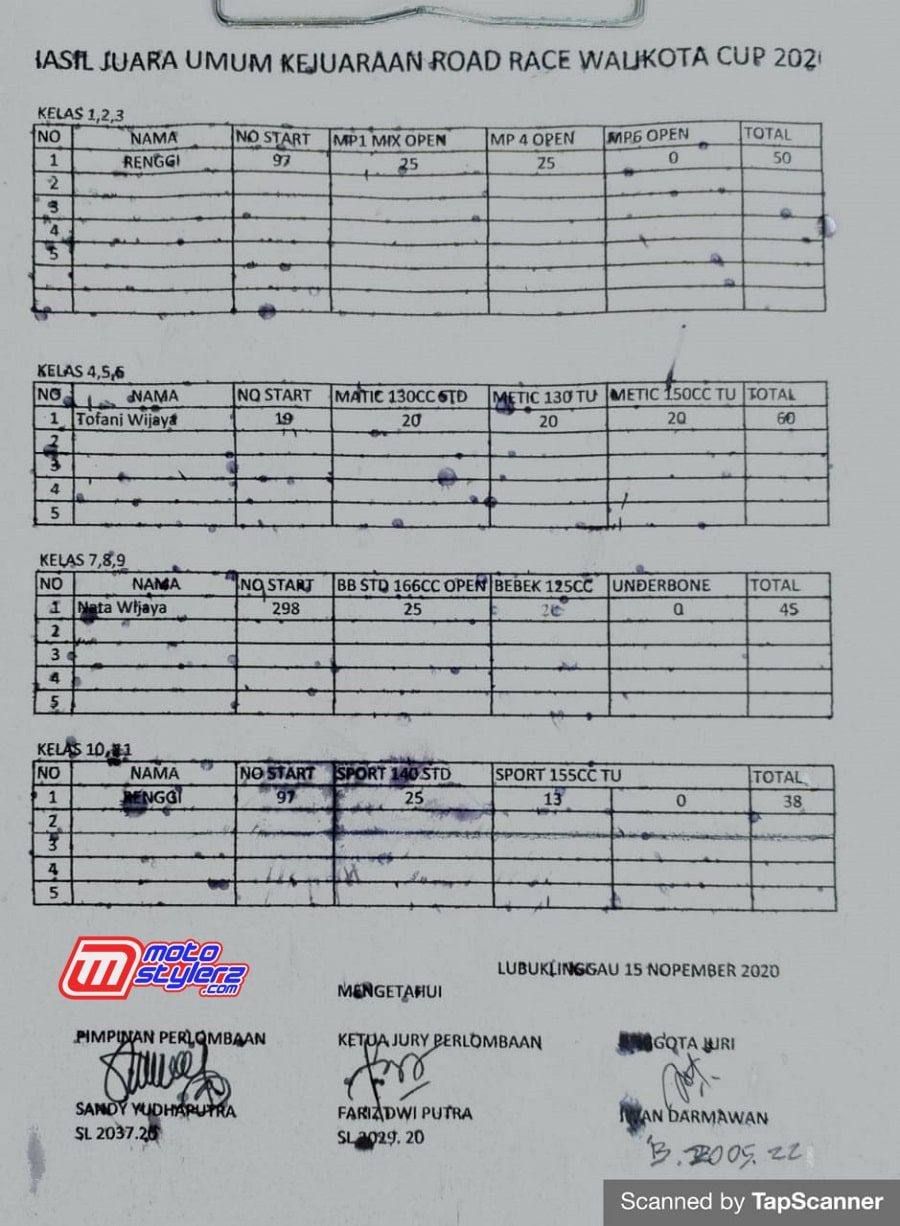 HASIL JUARA UMUM KEJUARAAN ROAD RACE WALIKOTA CUP 202
KELAS 1,2,3
NO NAMA NO START MP1 MIX OPEN MP 4 OPEN MP6 OPEN TOTAL
1 RENGGI 97 25 25 0 50
2
3
4
5
KELAS 4,5,6
NO NAMA NO START MATIC 130CC STD METIC 130 TU METIC 150CC TU TOTAL
1 Tofani Wijaya 19 20 20 20 60
2
3
4
5
KELAS 7,8,9
NO NAMA NO START BB STD 166CC OPEN BEBEK 125CC UNDERBONE TOTAL
1 Nata Wijaya 298 25 20 0 45
2
3
4
5
KELAS 10,11
NO NAMA NO START SPORT 140 STD SPORT 155CC TU TOTAL
1 RENGGI 97 25 13 0 38
2
3
4
5
moto stylerz .com
LUBUKLINGGAU 15 NOPEMBER 2020
MENGETAHUI
PIMPINAN PERLOMBAAN KETUA JURY PERLOMBAAN ANGGOTA JURI
SANDY YUDHAPUTRA FARIZ DWI PUTRA IWAN DARMAWAN
SL 2037.20 SL 2029. 20 B. 2005. 22
Scanned by TapScanner